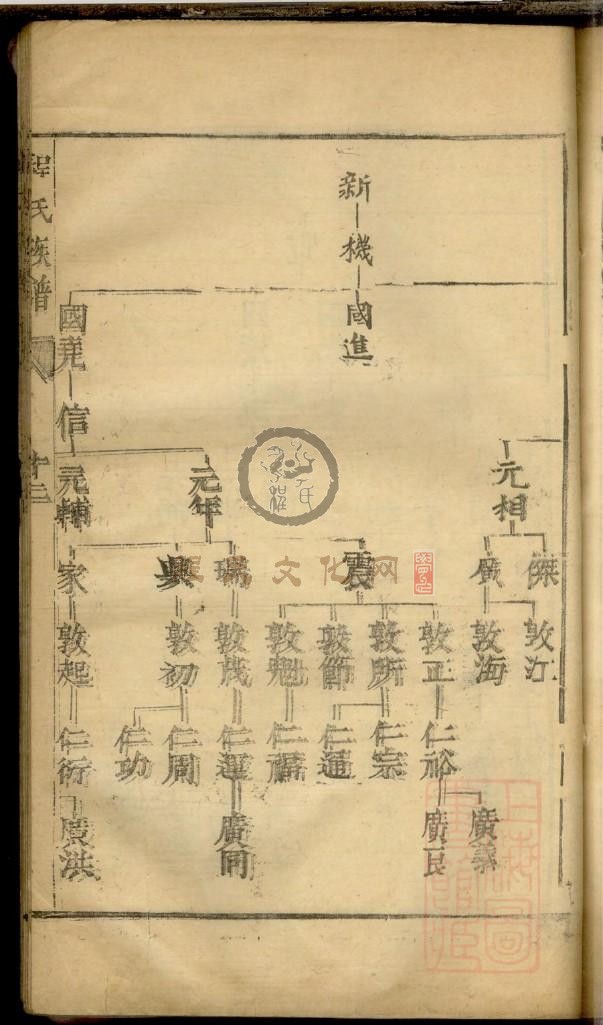 新
機
國進
元相
傑
廣
敦江
敦海
震
敦正
敦所
敦節
敦魁
仁裕
仁宗
仁通
仁福
廣義
廣良
國堯
信
元年
瑞
興
敦茂
敦初
仁運
仁周
仁功
廣同
元輔
家
敦起
仁衍
廣洪
程氏族譜
廿三
文化网